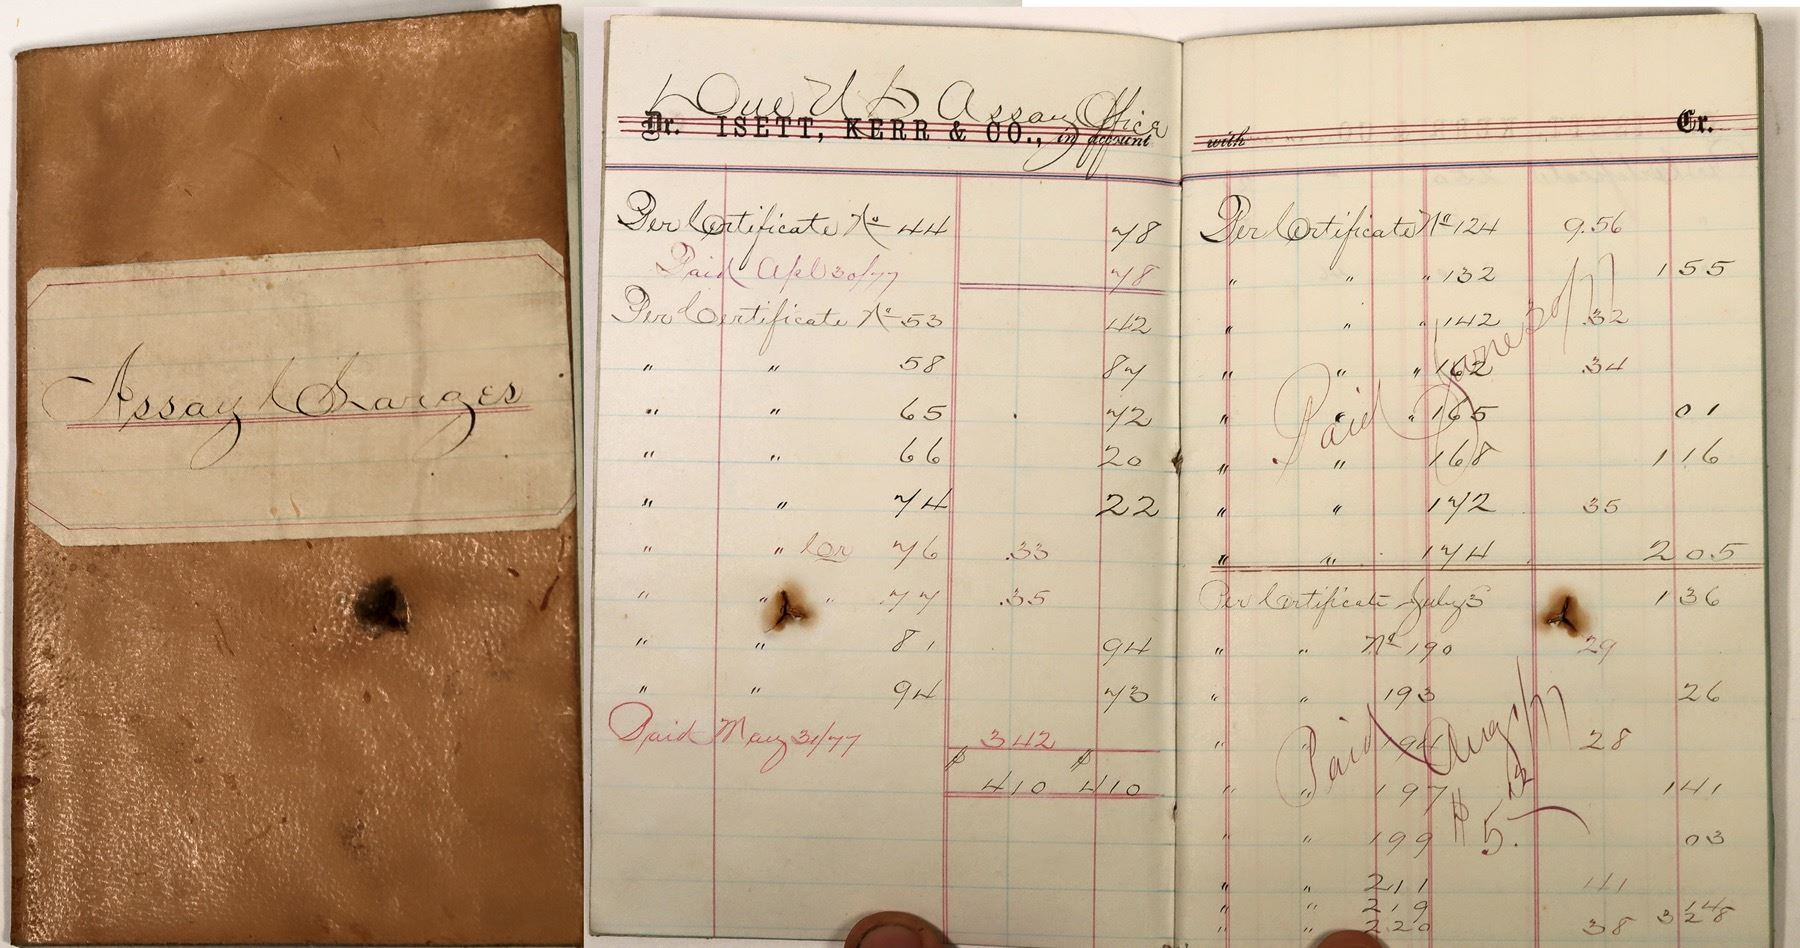 Assay Charges
Due U S Assay Office
Dr. ISETT, KERR & CO., in account
Per Certificate No 44 78
Paid Apl 30/77 78
Per Certificate No 53 42
" " 58 87
" " 65 72
" " 66 20
" " 74 22
" " Cr 76 .33
" " " 77 .35
" " 81 94
" " 94 73
Paid May 31/77 342
$ $
410 410
with Cr.
Per Certificate No 124 9.56
" " " 132 1 55
" " " 142 .32
" " " 162 .34
" " " 165 01
" " 168 1 16
" " 172 35
" " 174 2 05
Paid June 30/77
Per Certificate July 5 1 36
" " No 190 29
" " 193 26
" " 194 28
" " 197 1 41
" " 199 03
" " 211 41
" " 219 1 48
" " 220 38 3 28
Paid Aug
$ 5.